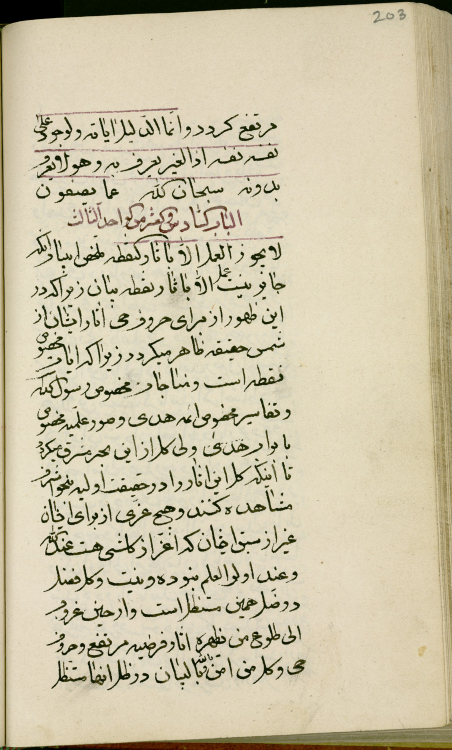 203
مرتفع كردد و انما الدليل اياته و لوجود علی
نفسه نفسه اذ الغیر یعرف به و هو لا یعرف
بدونه سبحان الله عما یصفون
الباب السادس و العشر من الواحد الثالث
لا یجوز العمل الا باثار النقطه ملخص این باب انکه
جایز نیست عمل الا باثار نقطه بیان زیرا که در
این ظهور از مرایای حروف حی اثار ایشان از
شمس حقیقه ظاهر میکردد زیرا که ایات مخصوص
نقطه است و مناجات مخصوص رسول الله
و تفاسیر مخصوص ائمه هدی و صور علمیه مخصوص
بابواب هدی ولی کل از این بحر مشرق میکردد
تا انکه کل این اثار را در حقیقت اولیه بنحو اشرف
مشاهده کنند و هیچ عزی از برای ایشان
غیر از سبق ایمان که اعز از کلشی هست عند الله
و عند اولوا العلم نبوده و نیست و کل فضل
در ظل همین مستظل است و از حین غروب
الی طلوع من یظهره اثار و قرطیه مرتفع و حروف
حی و کل من امن بالله و بالبیان در ظل انها مستظل